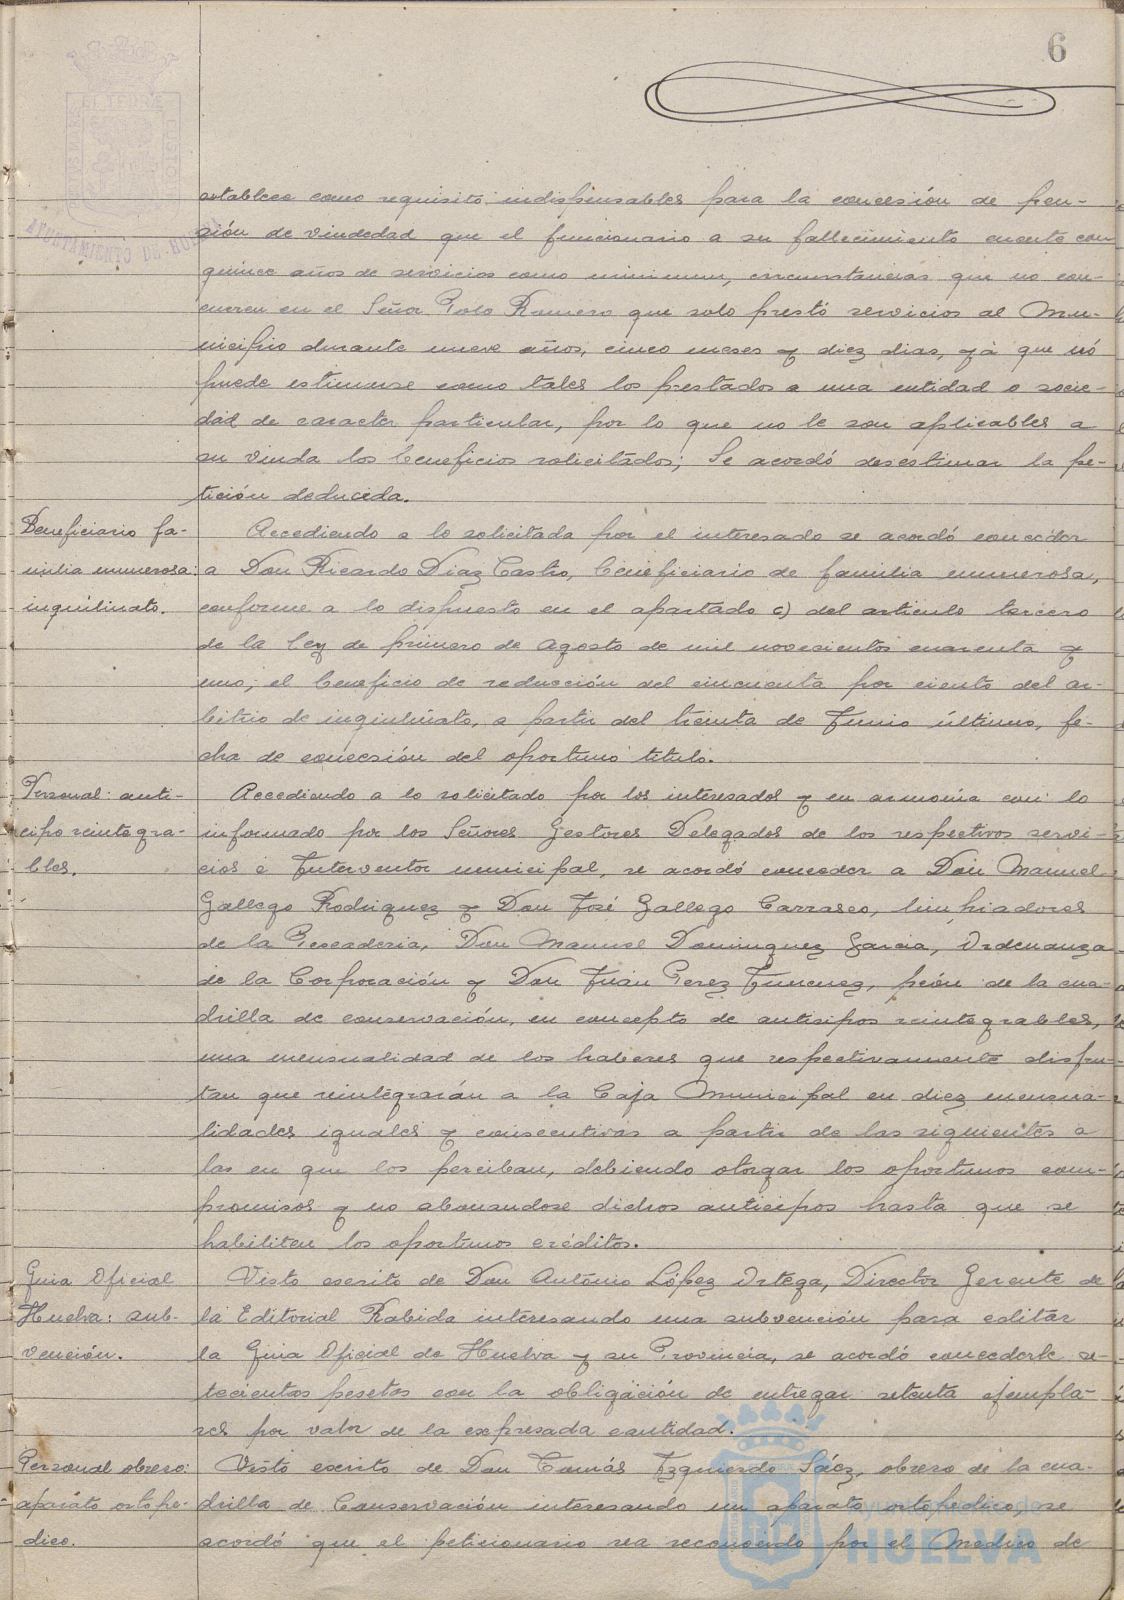 6
establece como requisito indispensables para la concesión de pen-
sión de viudedad que el funcionario a su fallecimiento cuente con
quince años de servicios como minimum, circunstancias que no con-
curren en el Señor Polo Romero que solo prestó servicios al Mu-
nicipio durante nueve años, cinco meses y diez dias, ya que no
puede estimarse como tales los prestados a una entidad o socie-
dad de caracter particular, por lo que no le son aplicables a
su viuda los beneficios solicitados; Se acordó desestimar la pe-
tición deducida.
Beneficiario fa-
milia numerosa:
inquilinato.
Accediendo a lo solicitada por el interesado se acordó conceder
a Don Ricardo Diaz Castro, beneficiario de familia numerosa,
conforme a lo dispuesto en el apartado c) del articulo tercero
de la ley de primero de Agosto de mil novecientos cuarenta y
uno, el beneficio de reducción del cincuenta por ciento del ar-
bitrio de inquilinato, a partir del treinta de Junio último, fe-
cha de concesión del oportuno titulo.
Personal: anti-
cipo reintegra-
bles.
Accediendo a lo solicitado por los interesados y en armonia con lo
informado por los Señores Gestores Delegados de los respectivos servi-
cios é Interventor municipal, se acordó conceder a Don Manuel
Gallego Rodriguez y Don José Gallego Carrasco, limpiadores
de la Pescaderia, Don Manuel Dominguez Garcia, Ordenanza
de la Corporación y Don Juan Perez Jimenez, peón de la cua-
drilla de conservación, en concepto de anticipos reintegrables,
una mensualidad de los haberes que respectivamente disfru-
tan que reintegrarán a la Caja Municipal en diez mensua-
lidades iguales y consecutivas a partir de las siguientes a
las en que los perciban, debiendo otorgar los oportunos com-
promisos y no abonandose dichos anticipos hasta que se
habiliten los oportunos créditos.
Guia Oficial
Huelva: sub-
vención.
Visto escrito de Don António López Ortega, Director Gerente de
la Editorial Rabida interesando una subvención para editar
la Guia Oficial de Huelva y su Provincia, se acordó concederle se-
tecientas pesetas con la obligación de entregar setenta ejempla-
res por valor de la expresada cantidad.
Personal obrero:
aparato ortope-
dico.
Visto escrito de Don Tomás Izquierdo Sáez, obrero de la cua-
drilla de Conservación interesando un aparato ortopedico, se
acordó que el peticionario sea reconocido por el Medico de
AYUNTAMIENTO DE HUELVA
Ayuntamiento de
HUELVA